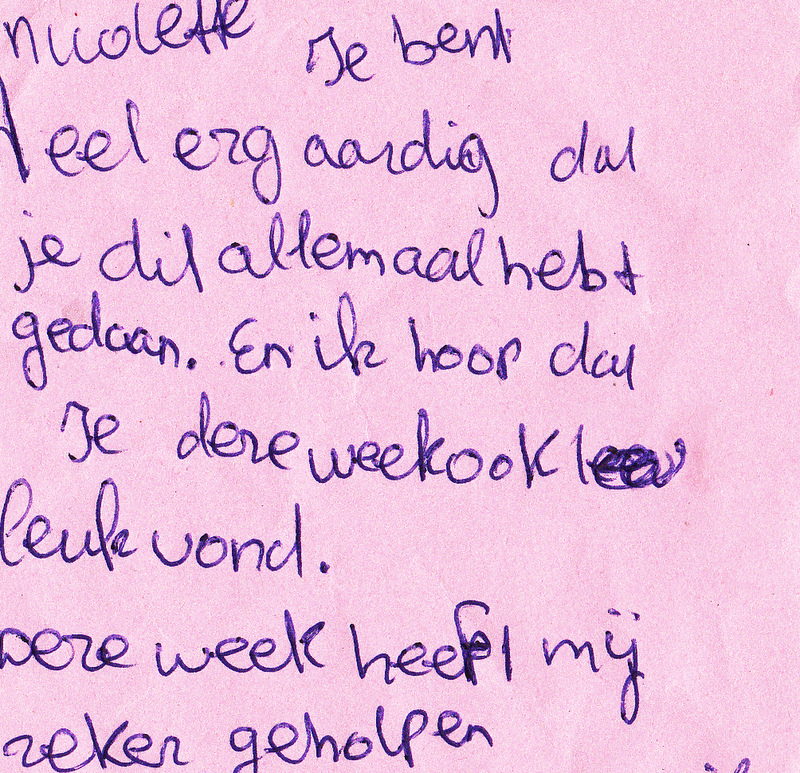 nicolette Je bent
heel erg aardig dat
je dit allemaal hebt
gedaan. En ik hoop dat
Je deze week ook
leuk vond.
Deze week heeft mij
zeker geholpen